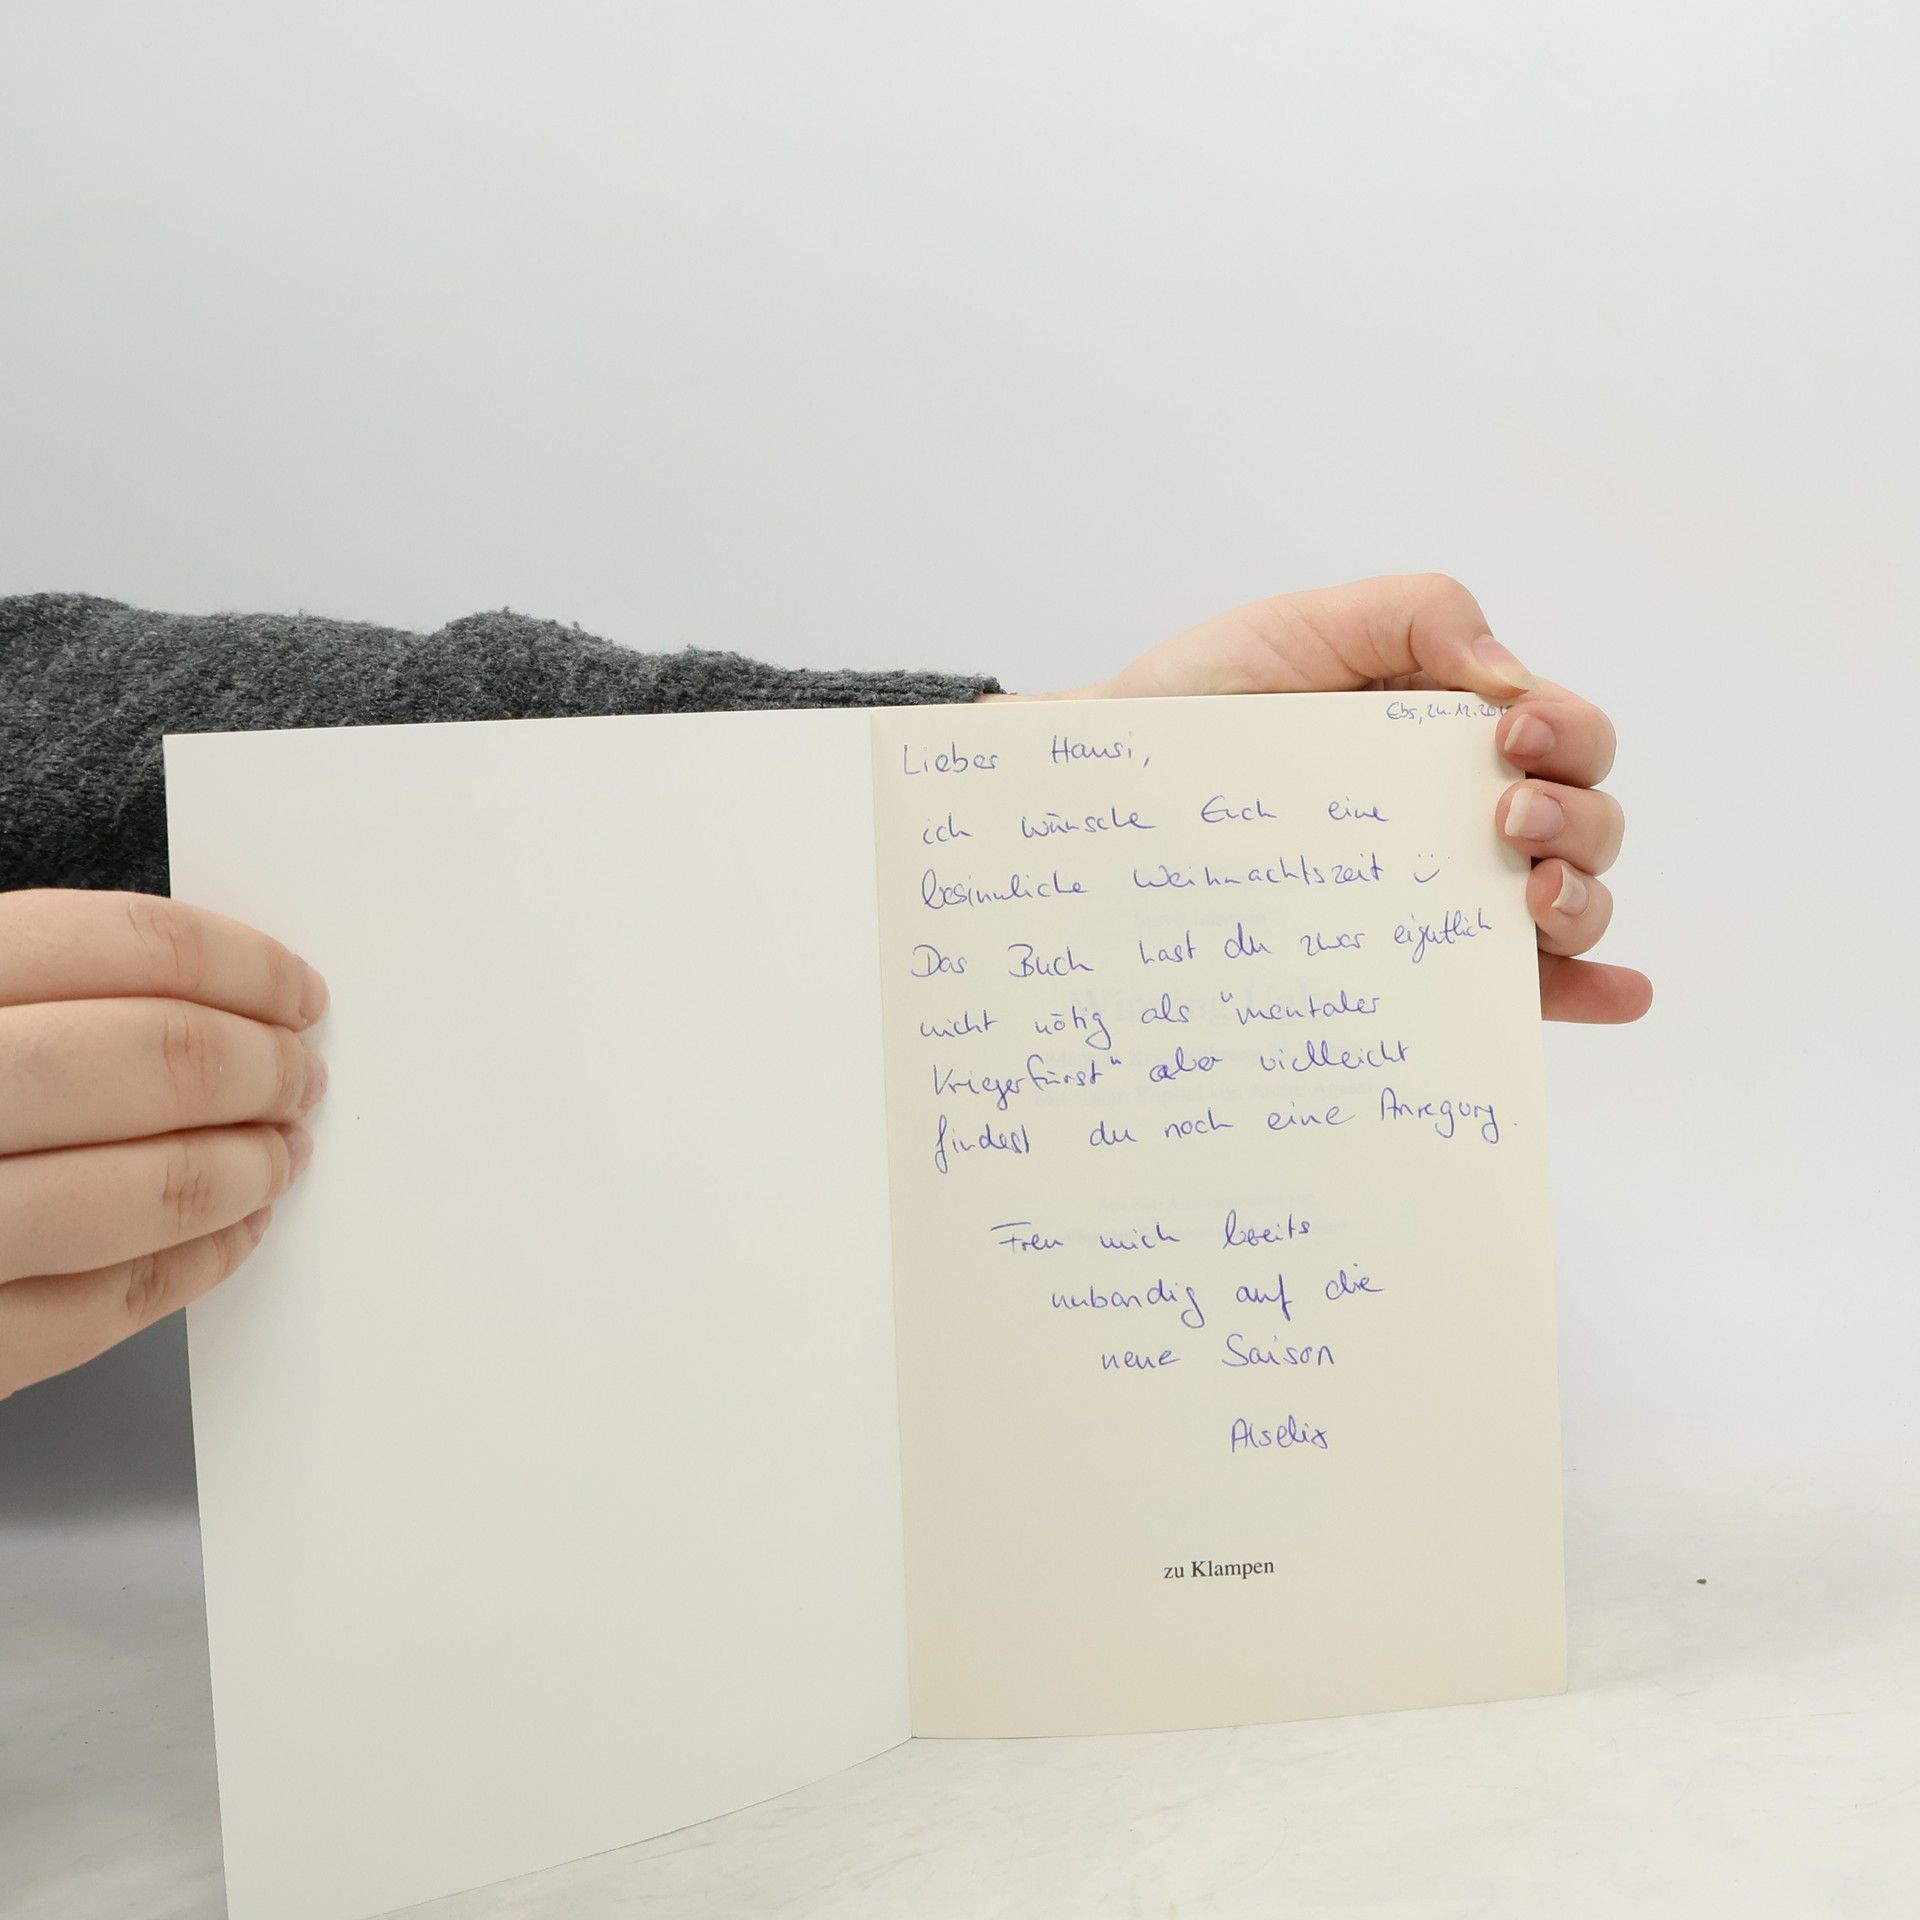 Ebs, 24.12.201
Lieber Hansi,
ich wünsche Euch eine
besinnliche Weihnachtszeit ü
Das Buch hast du zwar eigentlich
nicht nötig als "mentaler
Kriegerfürst" aber vielleicht
findest du noch eine Anregung.
Freu mich bereits
unbandig auf die
neue Saison
zu Klampen